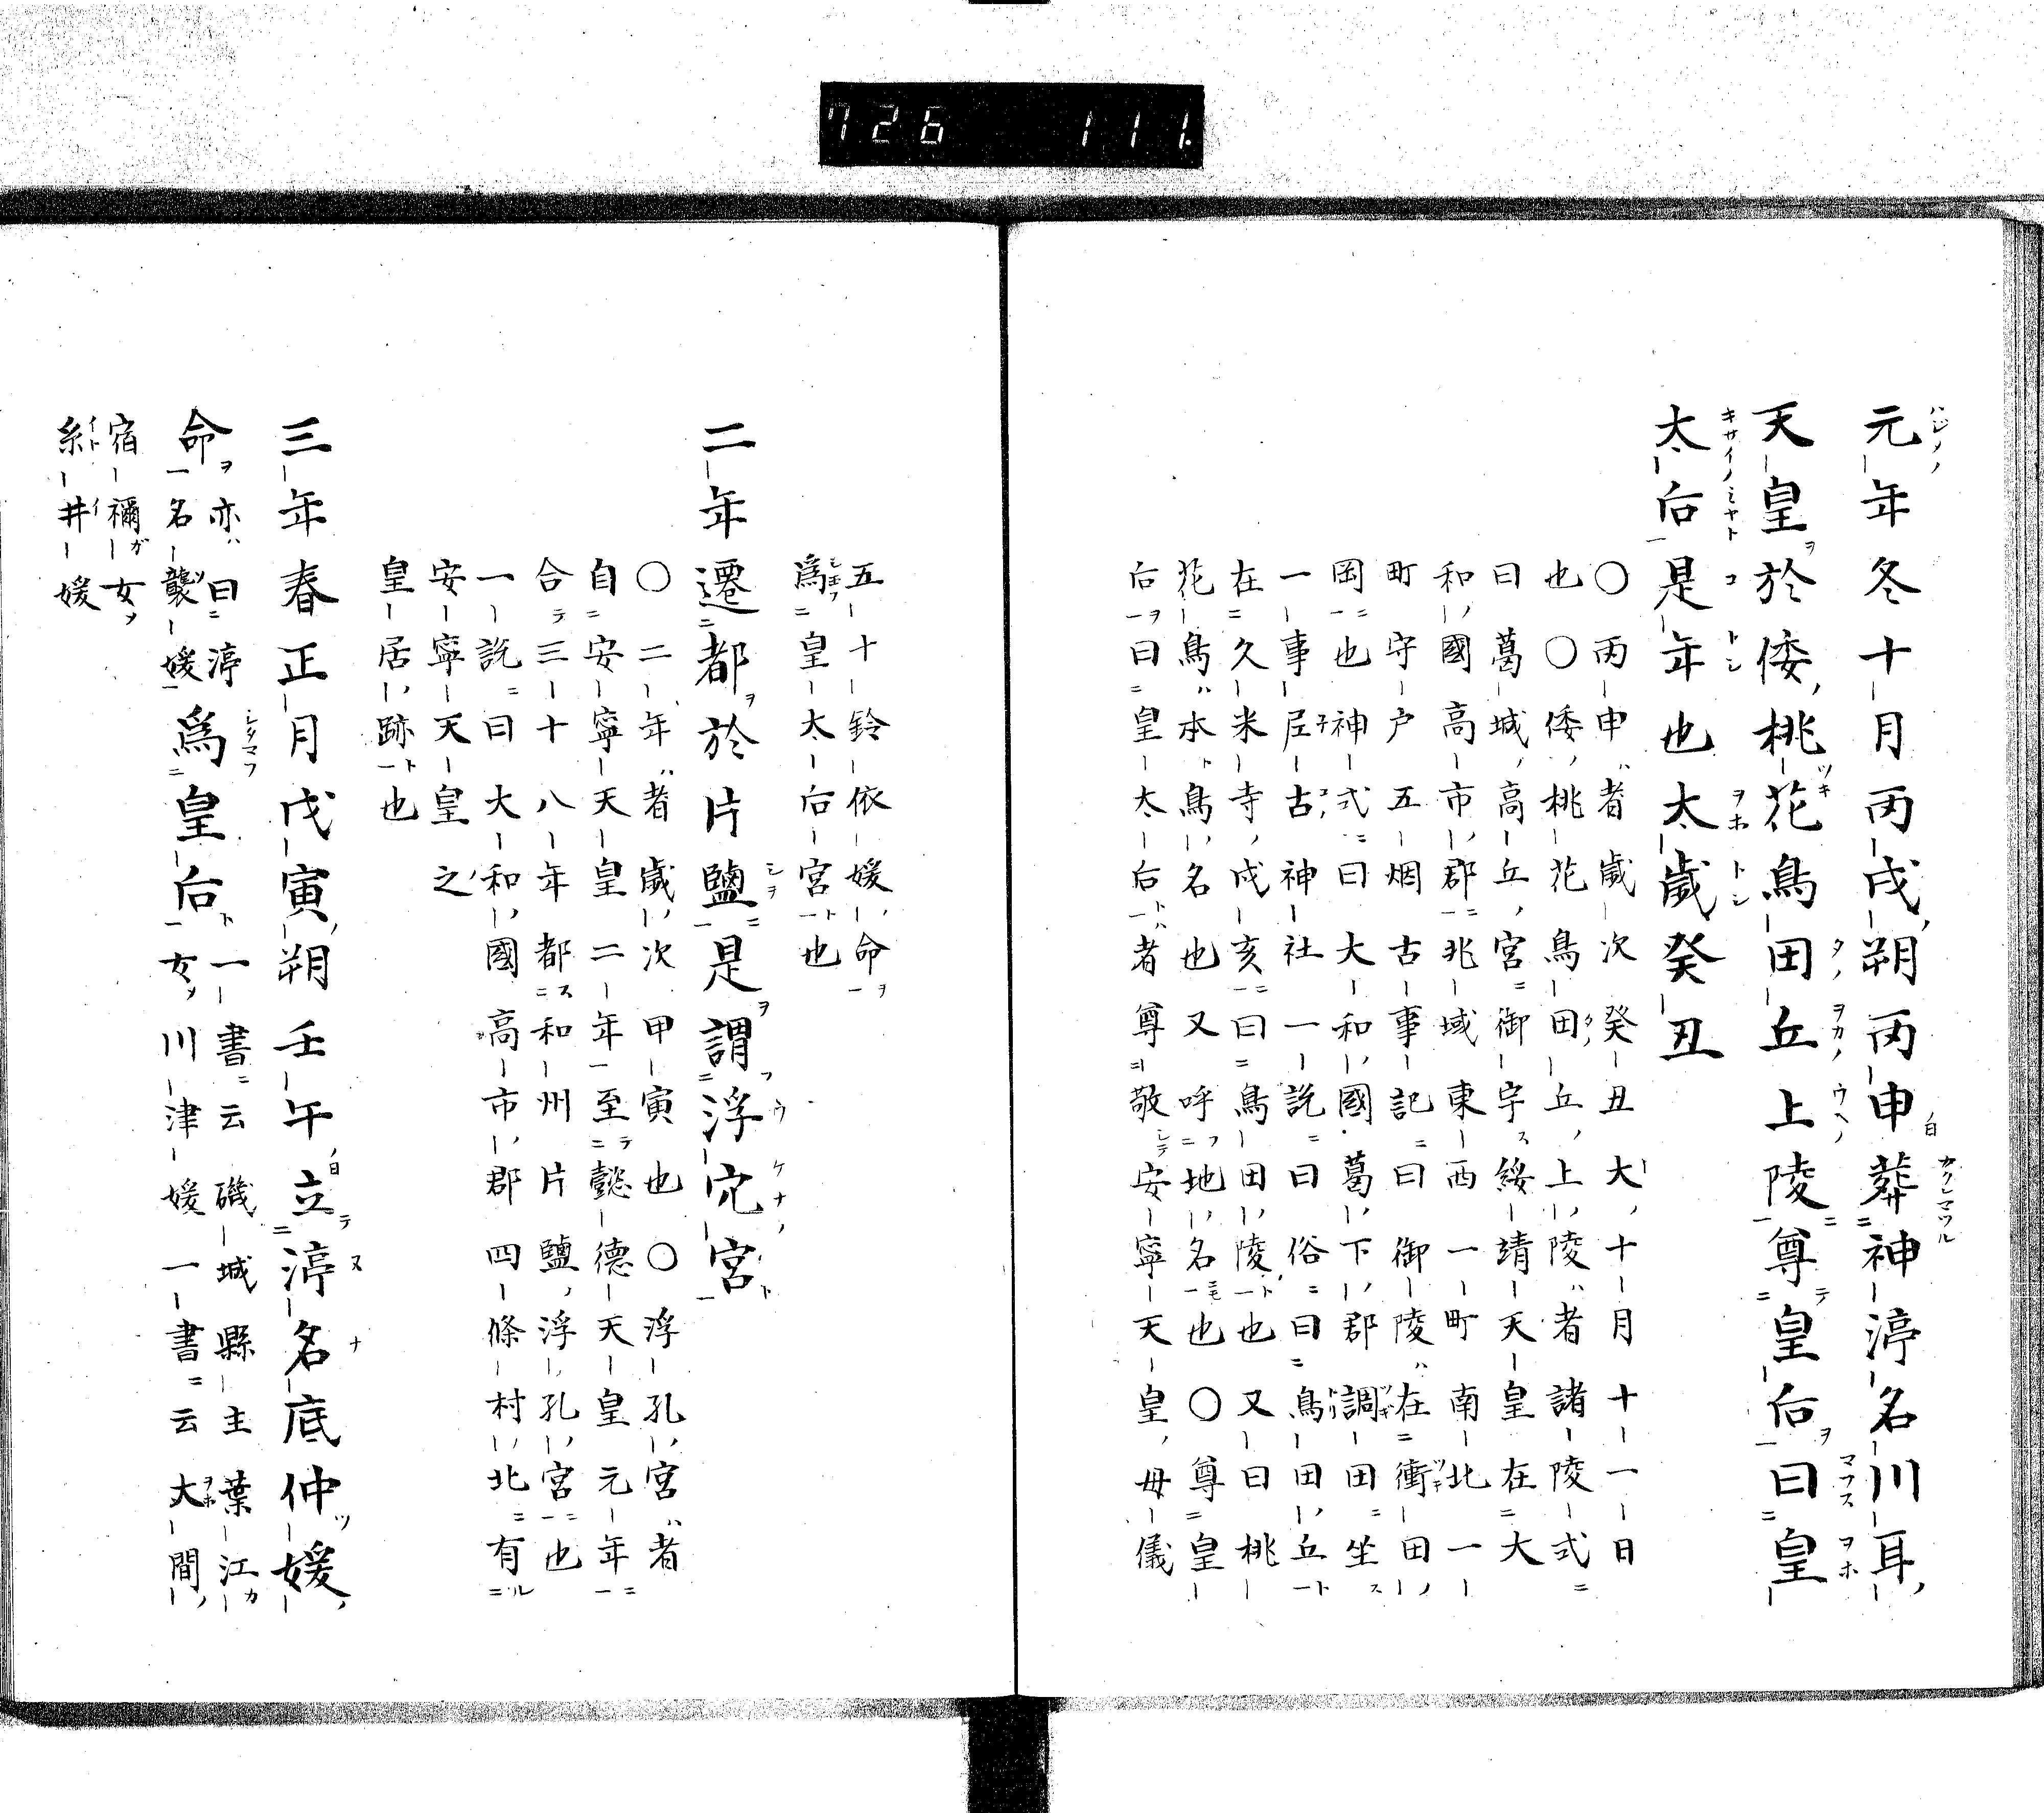 726 111.
元年冬十月丙戌朔丙申葬神渟名川耳
天皇於倭桃花鳥田丘上陵尊皇后曰皇
太后是年也太歳癸丑
〇丙申者歳次癸丑大十月十一日
也〇倭桃花鳥田丘上陵者諸陵式
曰葛城高丘宮御宇綏靖天皇在大
和國高市郡兆域東西一町南北一
町守戸五烟古事記曰御陵在衝田
岡也神式曰大和國葛下郡調田坐
一事尼古神社一説曰俗曰鳥田丘
在久米寺戍亥曰鳥田陵也又曰桃
花鳥本鳥名也又呼地名也〇尊皇
后曰皇太后者尊敬安寧天皇母儀
五十鈴依媛命
爲皇太后宮也
二年遷都於片鹽是謂浮穴宮
〇二年者歳次甲寅也〇浮孔宮者
自安寧天皇二年至懿德天皇元年
合三十八年都和州片鹽浮孔宮也
一説曰大和國高市郡四條村北有
安寧天皇之
皇居跡也
三年春正月戊寅朔壬午立渟名底仲媛
命亦曰渟名襲媛爲皇后一書云磯城縣主葉江女川津媛一書云大間
宿禰女
糸井媛